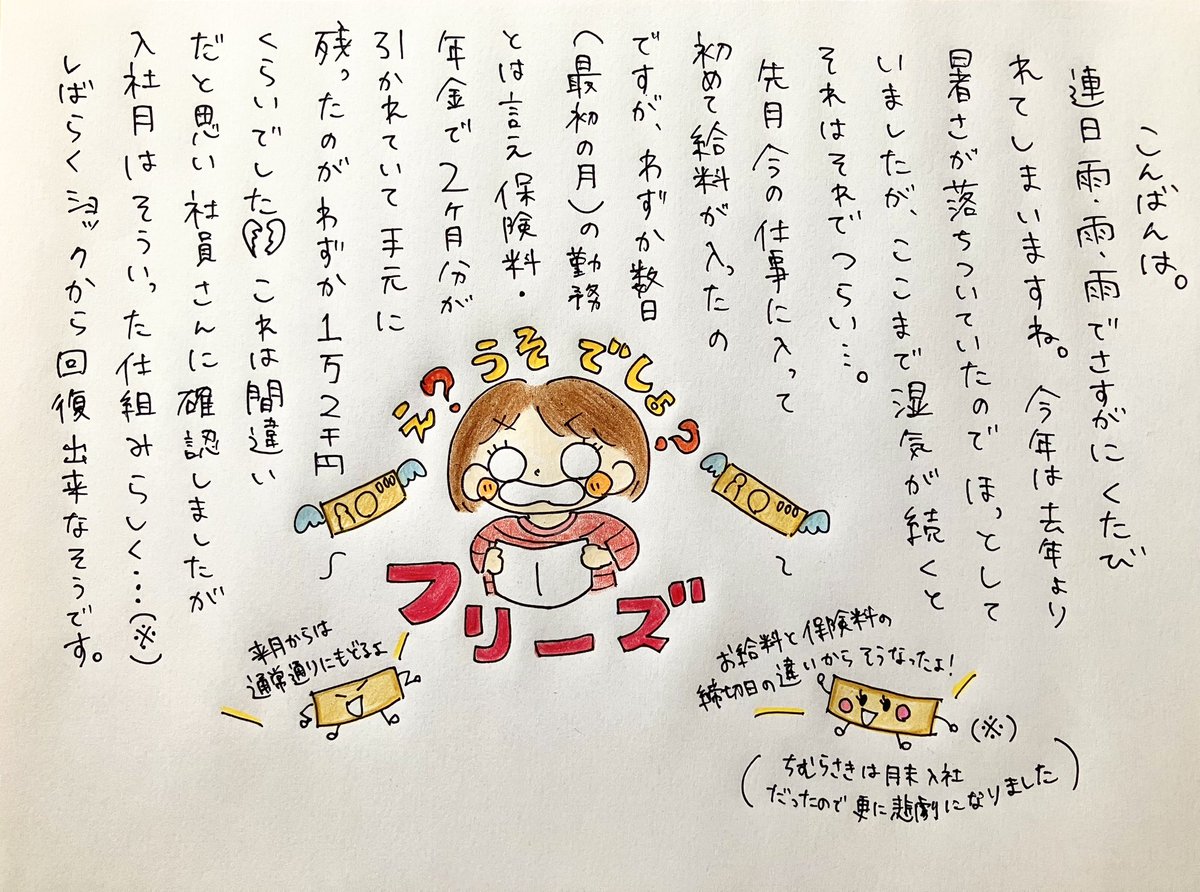 こんばんは。
連日雨・雨・雨でさすがにくたび
れてしまいますね。今年は去年より
暑さが落ちついていたのでほっとして
いましたが、ここまで湿気が続くと
それはそれでつらい…。
先月今の仕事に入って
初めて給料が入ったの
ですが、わずか数日
(最初の月)の勤務
とは言え保険料・
年金で2ヶ月分が
引かれていて手元に
残ったのがわずか1万2千円
くらいでした💔これは間違い
だと思い社員さんに確認しましたが
入社月はそういった仕組みらしく…(※)
しばらくショックから回復出来なそうです。
え?うそでしょ?
フリーズ
お給料と保険料の
締切日の違いからそうなったよ!
(※)
(ちむらさきは月末入社
だったので更に悲劇になりました)
来月からは
通常通りにもどるよ